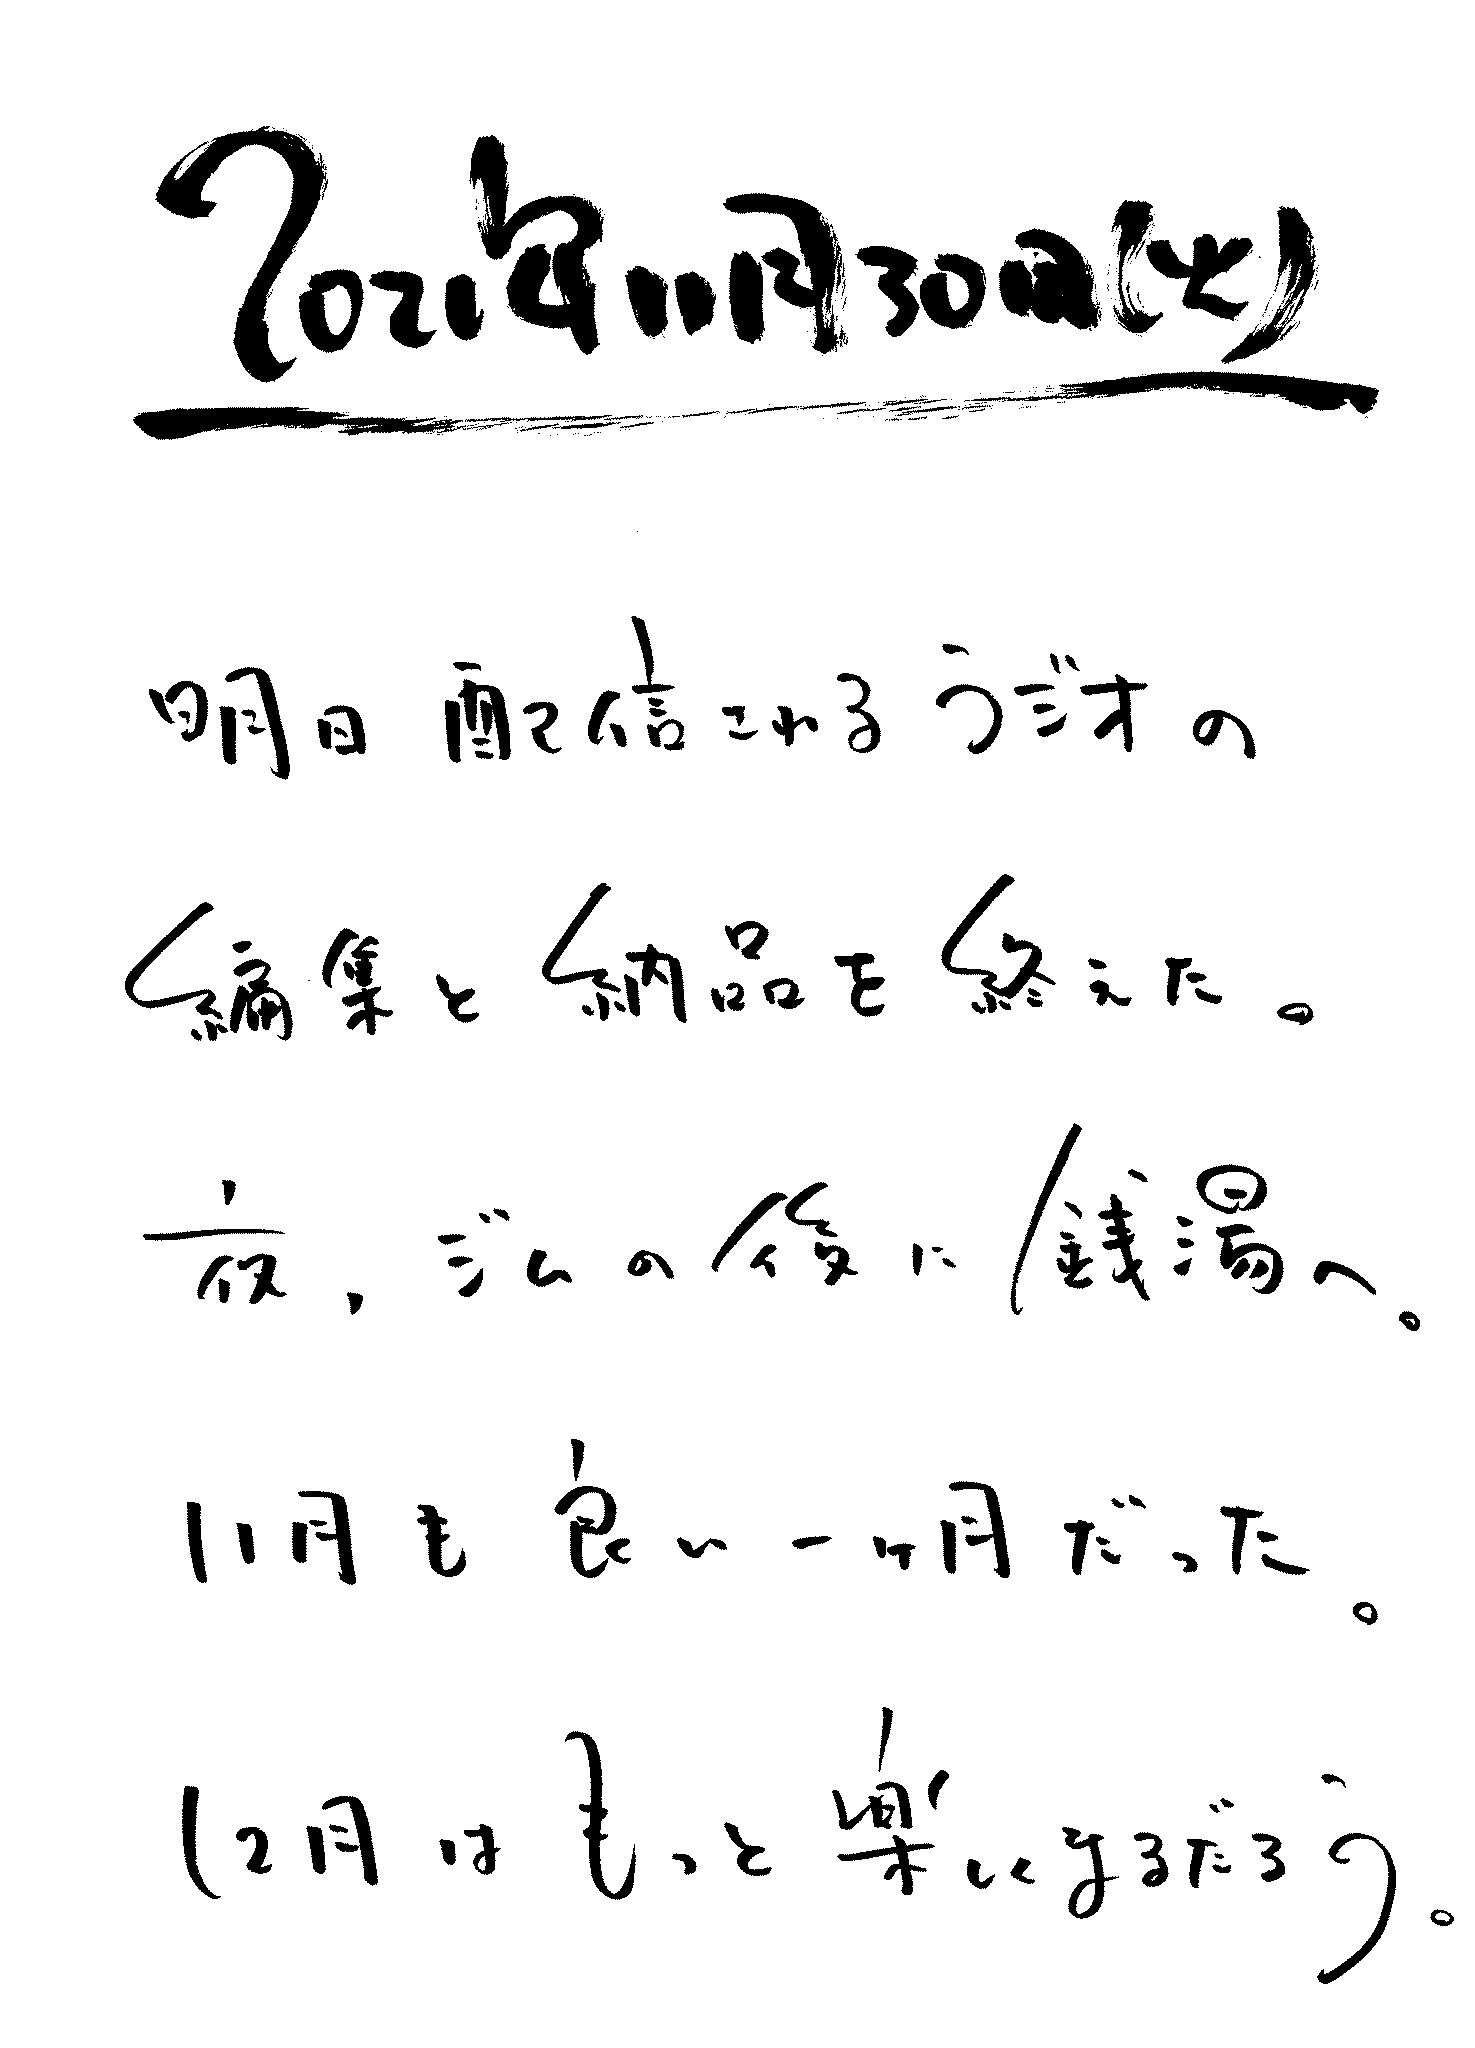 2021年11月30日(火)
明日配信されるラジオの
編集と納品を終えた。
夜、ジムの後に銭湯へ。
11月も良い一ヶ月だった。
12月はもっと楽しくなるだろう。